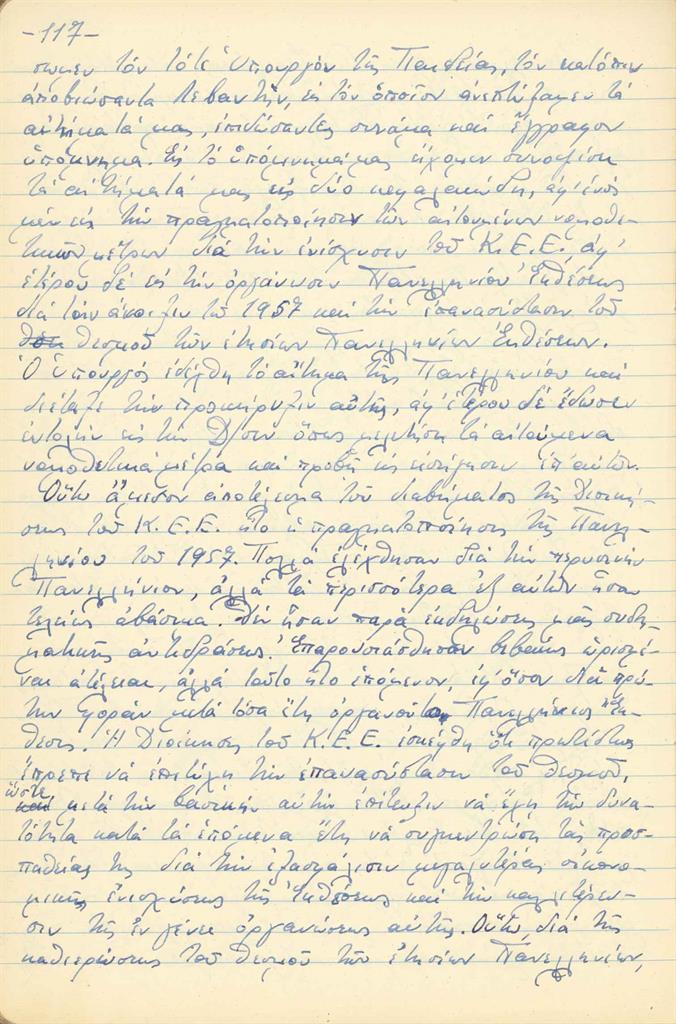 -117-
σωμεν τόν τότε Ὑπουργόν τῆς Παιδείας, τόν κατόπιν
ἀποβιώσαντα Λεβαντῆν, εἰς τόν ὁποῖον ἀνεπτύξαμεν τά
αἰτήματά μας, ἐπιδώσαντες συνάμα καί ἔγγραφον
ὑπόμνημα. Εἰς τό ὑπόμνημά μας εἴχομεν συνοψίσει
τά αἰτήματά μας εἰς δύο κεφαλαιώδη, ἀφ' ἑνός
μέν εἰς τήν πραγματοποίησιν τῶν αἰτουμένων νομοθε-
τικῶν μέτρων διά τήν ἐνίσχυσιν τοῦ Κ.Ε.Ε. ἀφ'
ἑτέρου δέ εἰς τήν ὀργάνωσιν Πανελληνίου Ἐκθέσεως
διά τήν ἄνοιξιν τοῦ 1957 καί τήν ἐπανασύστασιν τοῦ
θεσμοῦ τῶν ἐτησίων Πανελληνίων Ἐκθέσεων.
Ὁ Ὑπουργός ἐδέχθη τό αἴτημα τῆς Πανελληνίου καί
διέταξε τήν προκήρυξιν αὐτῆς, ἀφ' ἑτέρου δέ ἔδωσεν
ἐντολήν εἰς τήν Δ/σιν ὅπως μελετήση τά αἰτούμενα
νομοθετικά μέτρα καί προβῆ εἰς εἰσήγησιν ἐπ' αὐτῶν.
Οὕτω ἄμεσον ἀποτέλεσμα τοῦ διαβήματος τῆς Διοική-
σεως τοῦ Κ.Ε.Ε. ἦτο ἡ πραγματοποίησις τῆς Πανελ-
ληνίου τοῦ 1957. Πολλά ἐλέχθησαν διά τήν περυσινήν
Πανελλήνιον, ἀλλά τά περισσότερα ἐξ αὐτῶν ἦσαν
τελείως ἀβάσιμα. Δέν ἦσαν παρά ἐκδηλώσεις μιᾶς συστη-
ματικῆς ἀντιδράσεως. Ἐπαρουσιάσθησαν βεβαίως ὡρισμέ-
ναι ἀτέλειαι, ἀλλά τοῦτο ἦτο ἑπόμενον, ἐφ' ὅσον διά πρώ-
την φοράν μετά τόσα ἔτη ὀργανοῦτο Πανελλήνιος Ἔκ-
θεσις. Ἡ Διοίκησις τοῦ Κ.Ε.Ε. ἐσκέφθη ὅτι πρωτίστως
ἔπρεπε νά ἐπιτύχη τήν ἐπανασύστασιν τοῦ θεσμοῦ,
ὥστε μετά τήν βασικήν αὐτήν ἐπίτευξιν νά ἔχη τήν δυνα-
τότητα κατά τά ἑπόμενα ἔτη νά συγκεντρώση τάς προσ-
παθείας της διά τήν ἐξασφάλισιν μεγαλυτέρας οἰκονο-
μικῆς ἐνισχύσεως τῆς Ἐκθέσεως καί τήν καλλιτέρευ-
σιν τῆς ἐν γένει ὀργανώσεως αὐτῆς. Οὕτω, διά τῆς
καθιερώσεως τοῦ θεσμοῦ τῶν ἐτησίων Πανελληνίων,